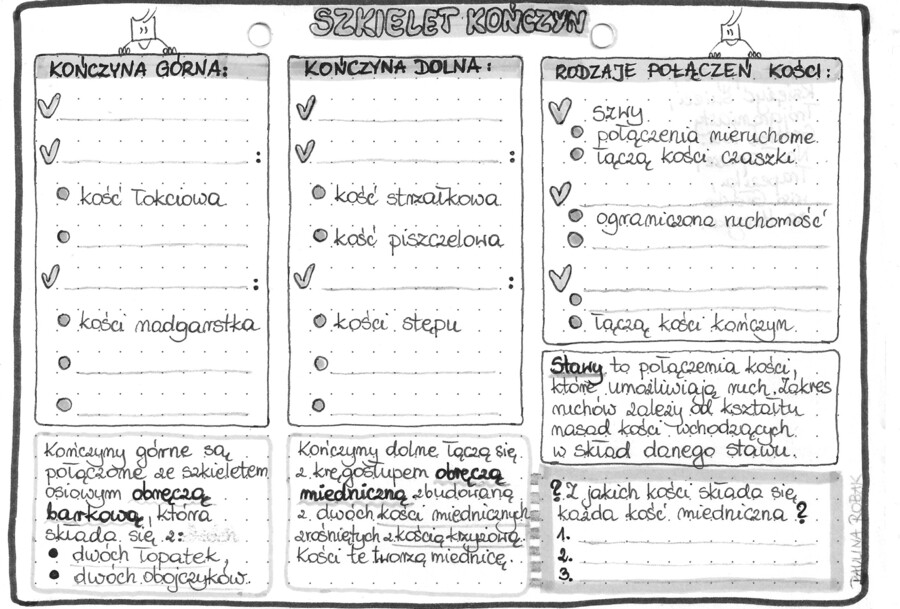 SZKIELET KOŃCZYN
KOŃCZYNA GÓRNA:
:
kość łokciowa
:
kości nadgarstka
Kończymy górne są
połączone ze szkieletem
osiowym obręczą
barkową, która
składa się z:
dwóch łopatek,
dwóch obojczyków.
KOŃCZYNA DOLNA:
:
kość strzałkowa
kość piszczelowa
:
kości stępu
Kończymy dolne łączą się
z kręgosłupem obręczą
miedniczną zbudowaną
z dwóch kości miednicznych
zrośniętych z kością krzyżową.
Kości te tworzą miednicę.
RODZAJE POŁĄCZEŃ KOŚCI:
szwy
połączenia nieruchome
łączą kości czaszki
ograniczona ruchomość
łączą kości kończyn.
Stawy to połączenia kości,
które umożliwiają ruch. Zakres
ruchów zależy od kształtu
nasad kości wchodzących
w skład danego stawu.
? Z jakich kości składa się
każda kość miedniczna ?
1.
2.
3.
PAULINA ROBAK